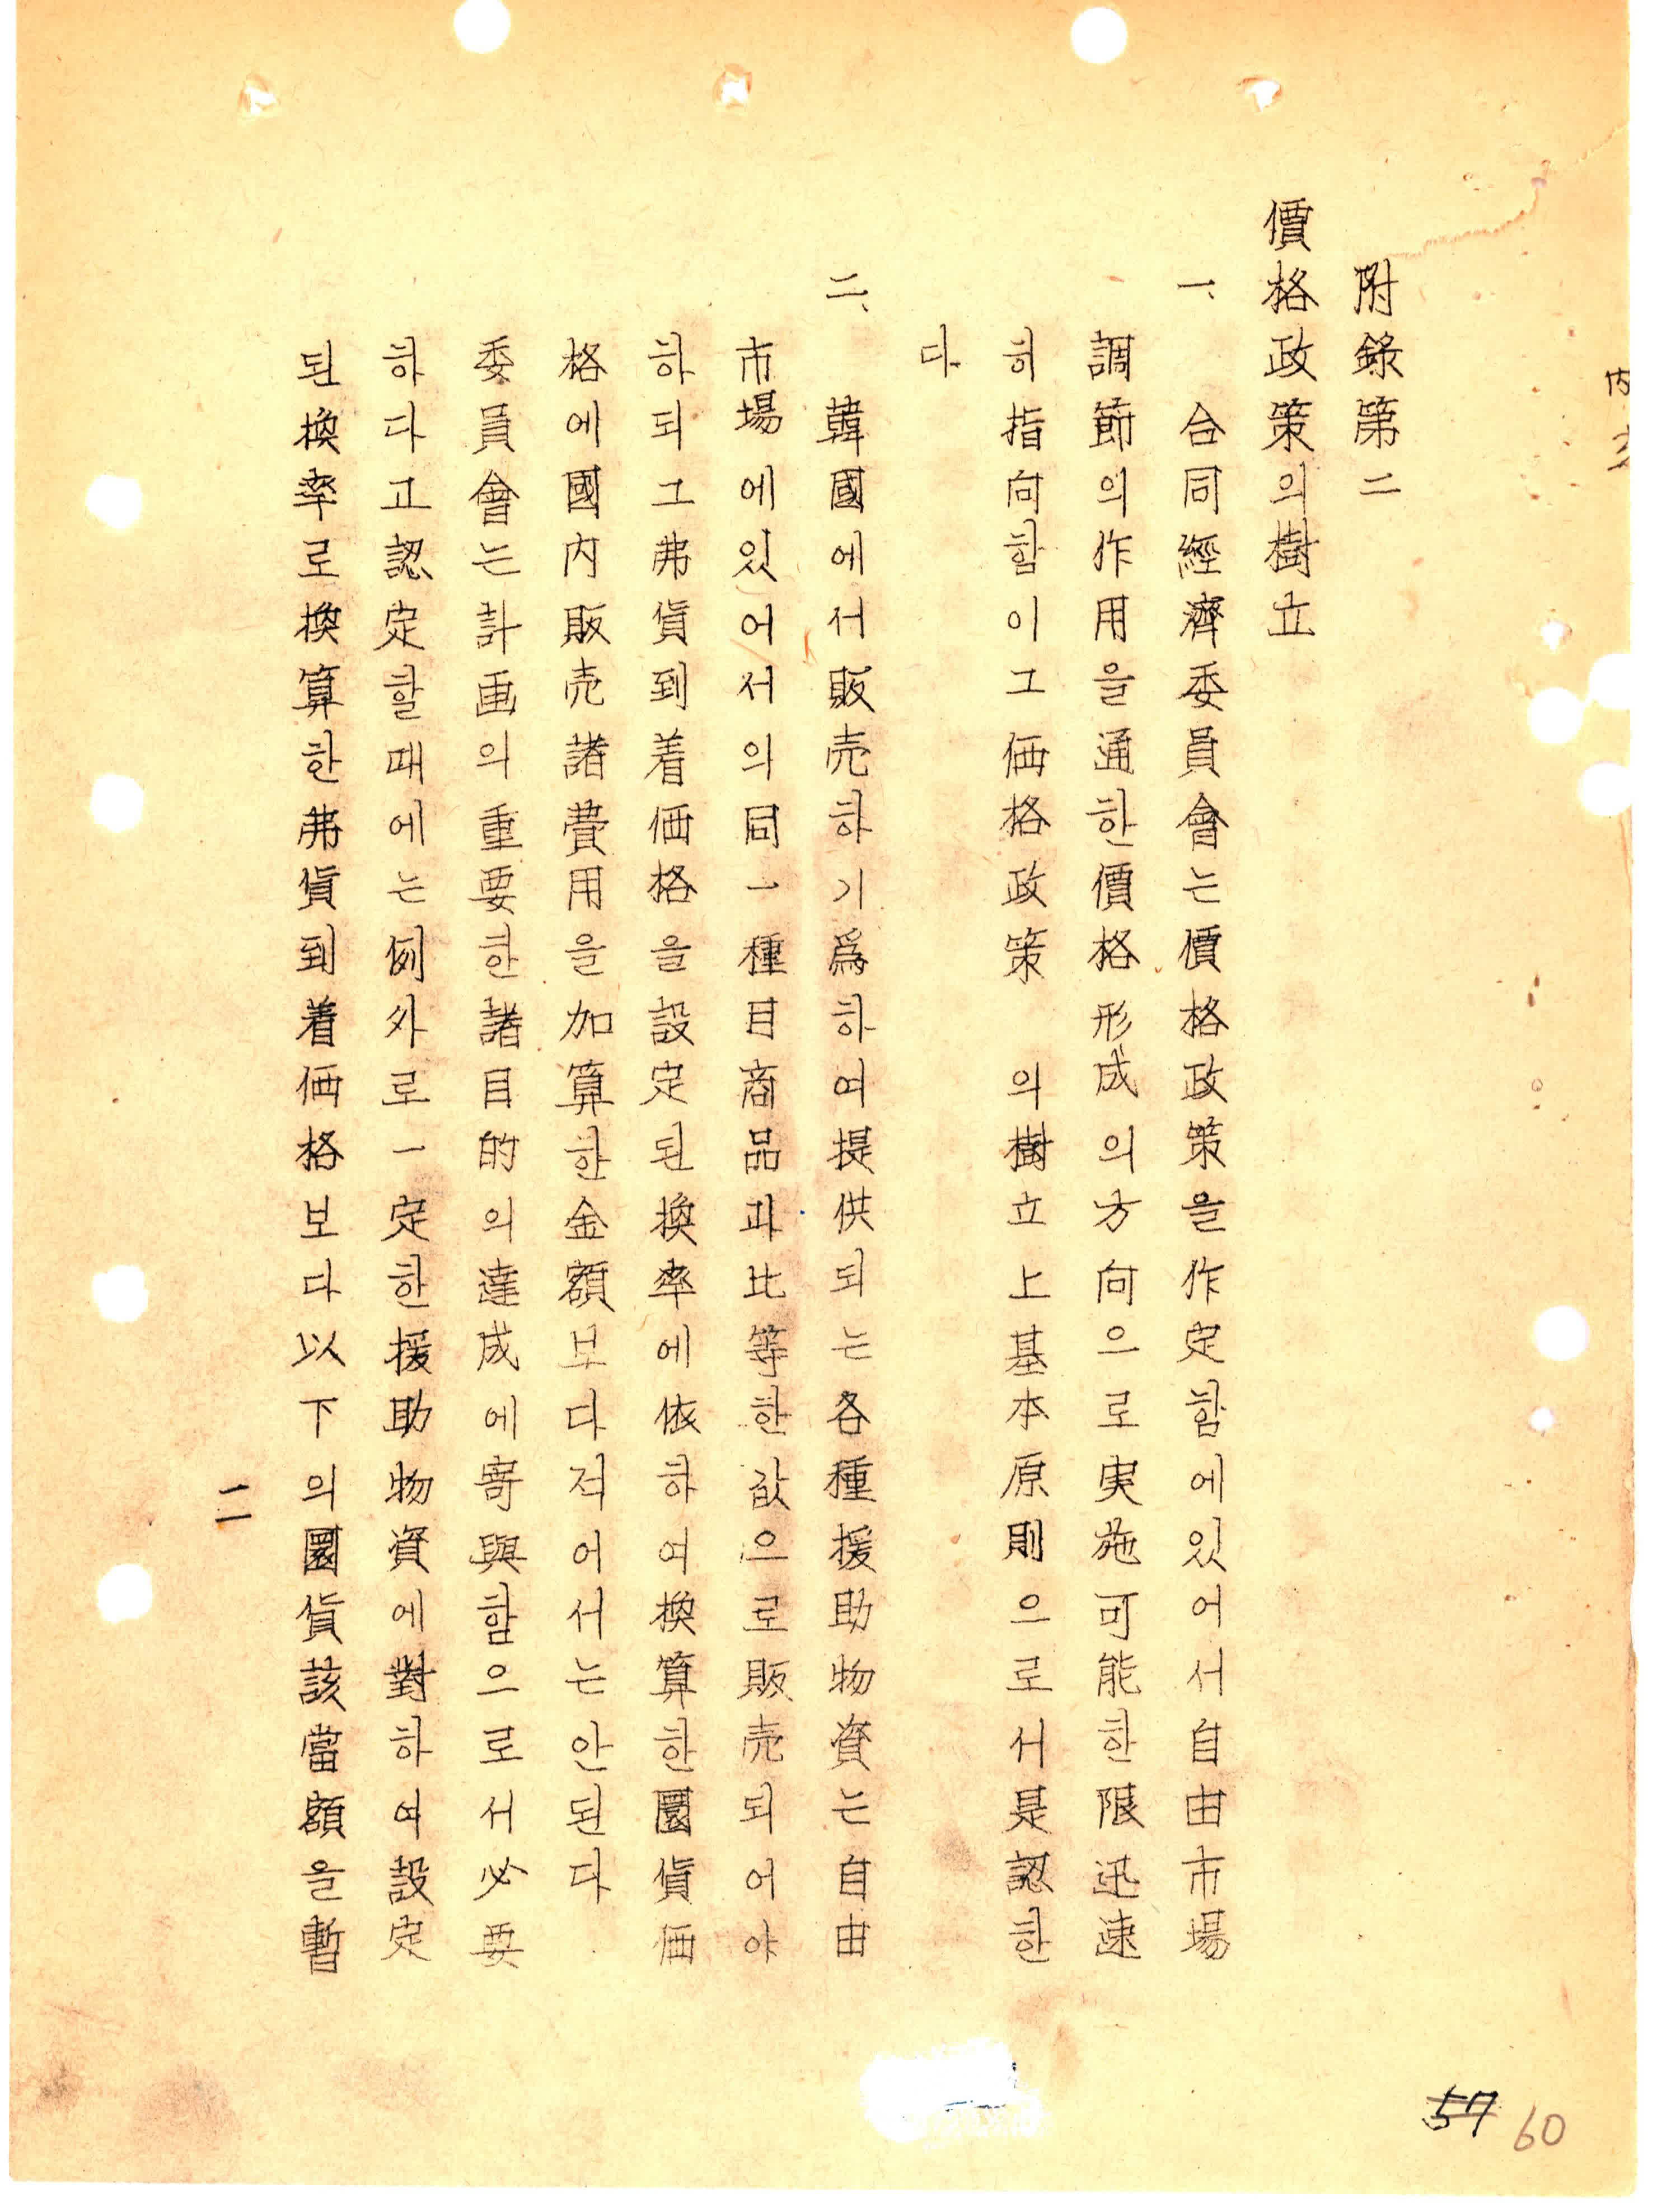 附錄第二
價格政策의樹立
一、合同經濟委員會는價格政策을作定함에있어서自由市場
調節의作用을通한價格形成의方向으로実施可能한限迅速
히指向함이그価格政策의樹立上基本原則으로서是認한
다
二、韓國에서販売하기爲하여提供되는各種援助物資는自由
市場에있어서의同一種目商品과比等한값으로販売되어야
하되그弗貨到着価格을設定된換率에依하여換算한圜貨価
格에國內販売諸費用을加算한金額보다적어서는안된다
委員會는計画의重要한諸目的의達成에寄與함으로서必要
하다고認定할때에는例外로一定한援助物資에對하여設定
된換率로換算한弗貨到着価格보다以下의圜貨該當額을暫
二
57 60